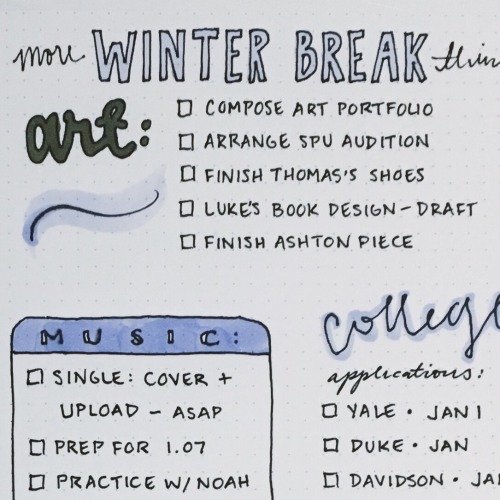 more WINTER BREAK
art:
☐ COMPOSE ART PORTFOLIO
☐ ARRANGE SPU AUDITION
☐ FINISH THOMAS'S SHOES
☐ LUKE'S BOOK DESIGN - DRAFT
☐ FINISH ASHTON PIECE
MUSIC:
☐ SINGLE: COVER +
UPLOAD - ASAP
☐ PREP FOR 1.07
☐ PRACTICE W/ NOAH
college
applications:
☐ YALE • JAN 1
☐ DUKE • JAN
☐ DAVIDSON • JA